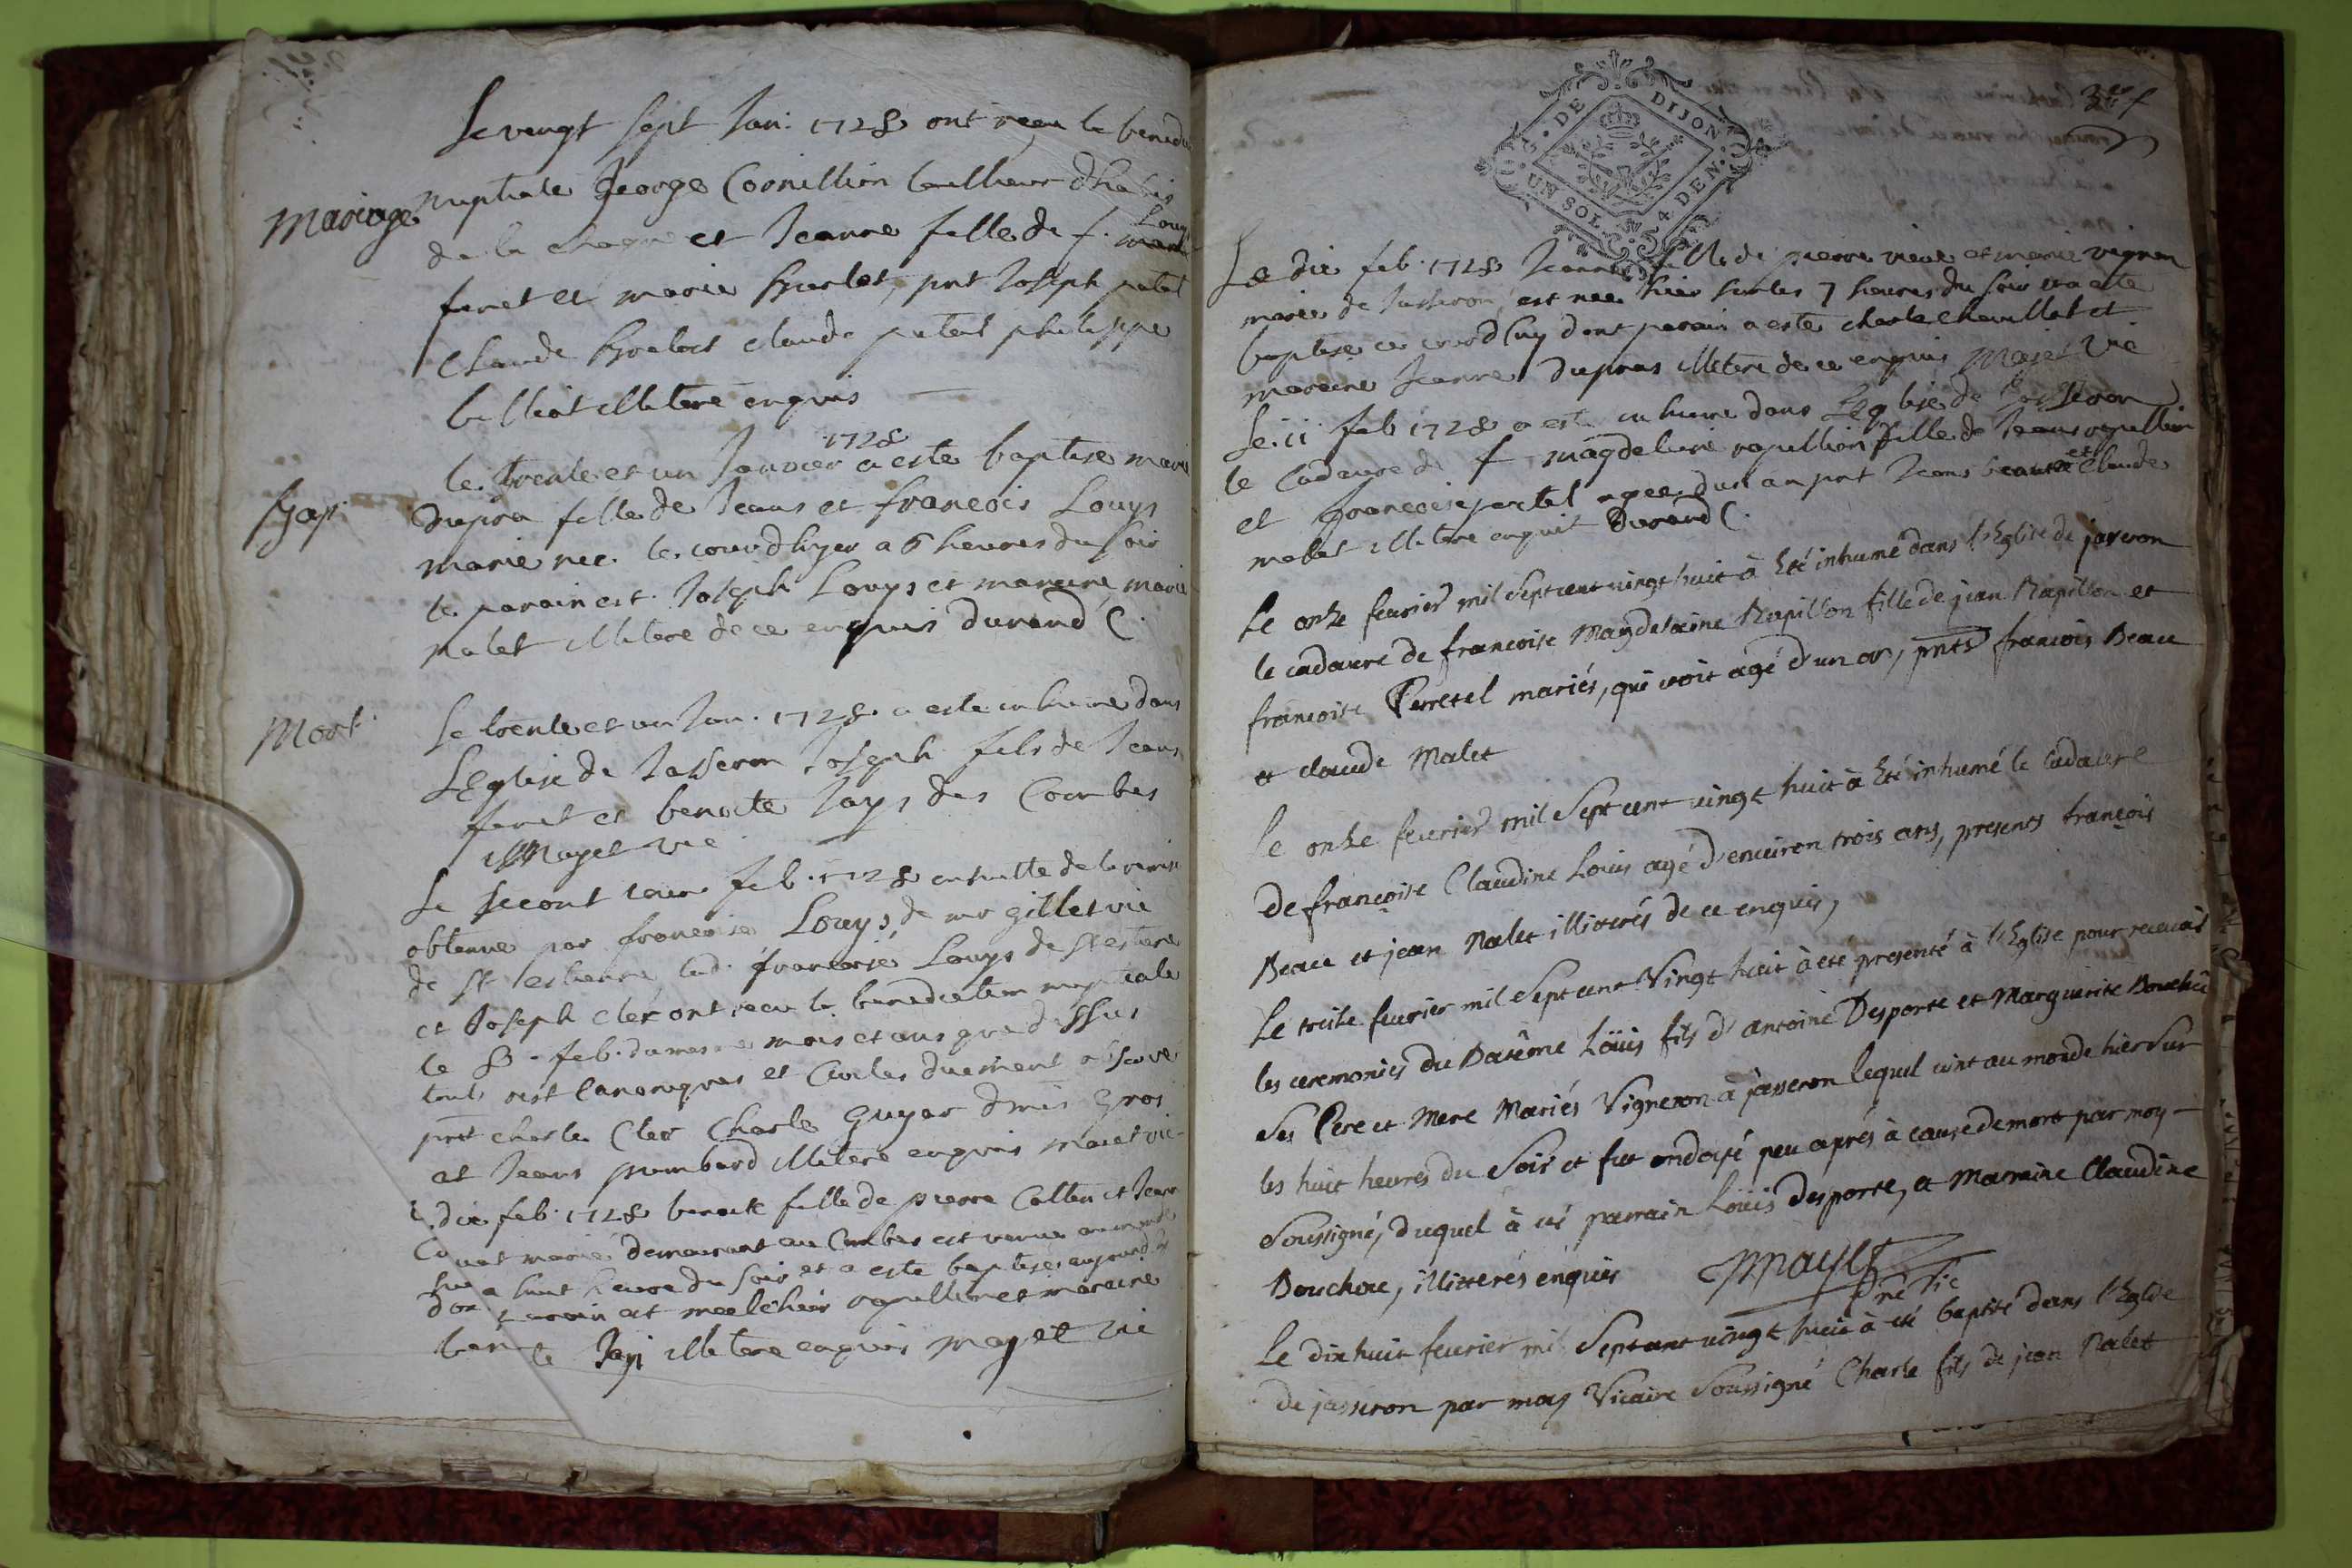 Le vingt sept Jan. 1728 ont receu la bened
Mariage nuptiale George Cornillion tailleur dhabis
de la et Jeanne fille de f. Louys
feret et marie Burlet, pnt Joseph patel
Claude claude patel philippe
illitere enquis
1728
le trente et un Janvier a este baptise marie
Bap
dupra fille de Jean et francois Louys
marie nee le jourdhyer a 6 heures du soir
le parain est Joseph Louys et maraine marie
malet illitere de ce enquis durand C.
Mort
Le trente et un Jan. 1728 a este inhume dans
LEglise de Jasseron Joseph fils de Jean
feret et benoite Jays des Combes
Mayet vic
Le second jour feb. 1728 ensuitte de la remise
obtenue par francoise Louys de mr gillet vic
de St estienne lad. francoise Louys de St estiene
et Joseph cler ont receu la benediction nuptiale
le 3 feb. du mesme mois et ans que dessus
touts canoniques et Civiles duement observe
pnt charle Cler Charle Guyar denis Gros
et Jean pumbard illitere enquis maiet vic
dix feb. 1728 benoite fille de pierre Collin et Jeane
marie demeurant au Combes est venue au monde
a huit heure du soir et a este baptisee aujourd
parain est melchior rapillion et maraine
Jayi illitere enquis mayet vic
DE DIJON
UN SOL 4 DEN.
Le dix feb. 1728 Jeanne fille de pierre vieux et marie vignon
marie de Jasseron est nee hier sur les 7 heures du soir et a este
baptise ce jourdhuy dont parain a este charle chevillat et
maraine Jeanne dupras illitere de ce enquis Mayet vic
Le 11 feb 1728 a este inhume dans LEglise de Jasseron
le Cadavre de f magdeleine rapillion fille de Jean rapillion
et francoise pertel agee dun an pnt Jean beaux et Claude
malet illitere enquit Durand C.
Le onze feurier mil Sept cent vingt huit à Eté inhumé dans l'Eglise de jaseron
le cadavre de francoise Magdelaine Rapillon fille de jean Rapillon et
francoise Perretel mariés, qui etoit agé d'un an, pnts francois Beau
et claude Malet
Le onze feurier mil Sept cent vingt huit à Eté inhumé le Cadavre
De françoise Claudine Louis agé d'enuiron trois ans, presents françois
Beau et jean Malet illiterés de ce enquis,
Le treize feurier mil Sept cent Vingt huit à eté presenté à l'Eglise pour receuoir
les ceremonies du Batême Loüis fils d'antoine Desporte et Marguerite Bouchou
Ses Pere et Mere Mariés Vigneron à jasseron lequel vint au monde hier Sur
les huit heures du Soir et fut ondoyé peu aprés à cause de mort par moy
Soussigné, duquel à eté parrain Loüis Desporte, et Marraine Claudine
Bouchou, illiterés enquis Mayet
pre vic
Le dix huit feurier mil Sept cent vingt huit à eté baptisé dans l'Eglise
de jasseron par moy Vicaire Soussigné Charle fils de jean Malet